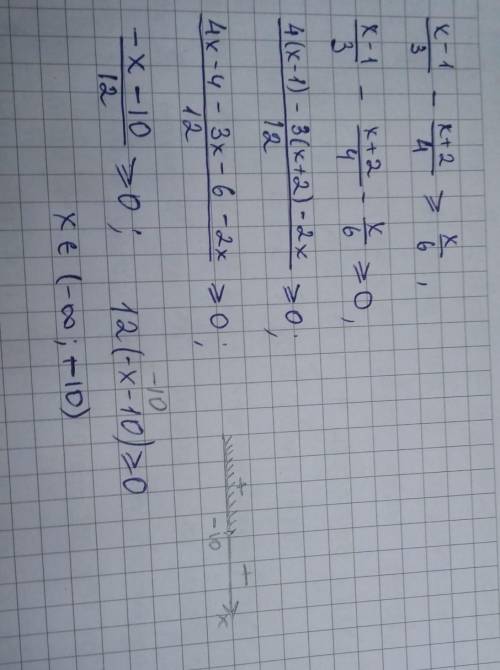 x-1/3 - x+2/4 ⩾ x/6 ,
x-1/3 - x+2/4 - x/6 ⩾ 0 ,
4(x-1) - 3(x+2) - 2x/12 ⩾ 0 ;
4x - 4 - 3x - 6 - 2x/12 ⩾ 0 ;
-x - 10/12 ⩾ 0 ; 12(-x-10) ⩾ 0
-10
x ∈ (-∞; -10)
+ -
-10 x